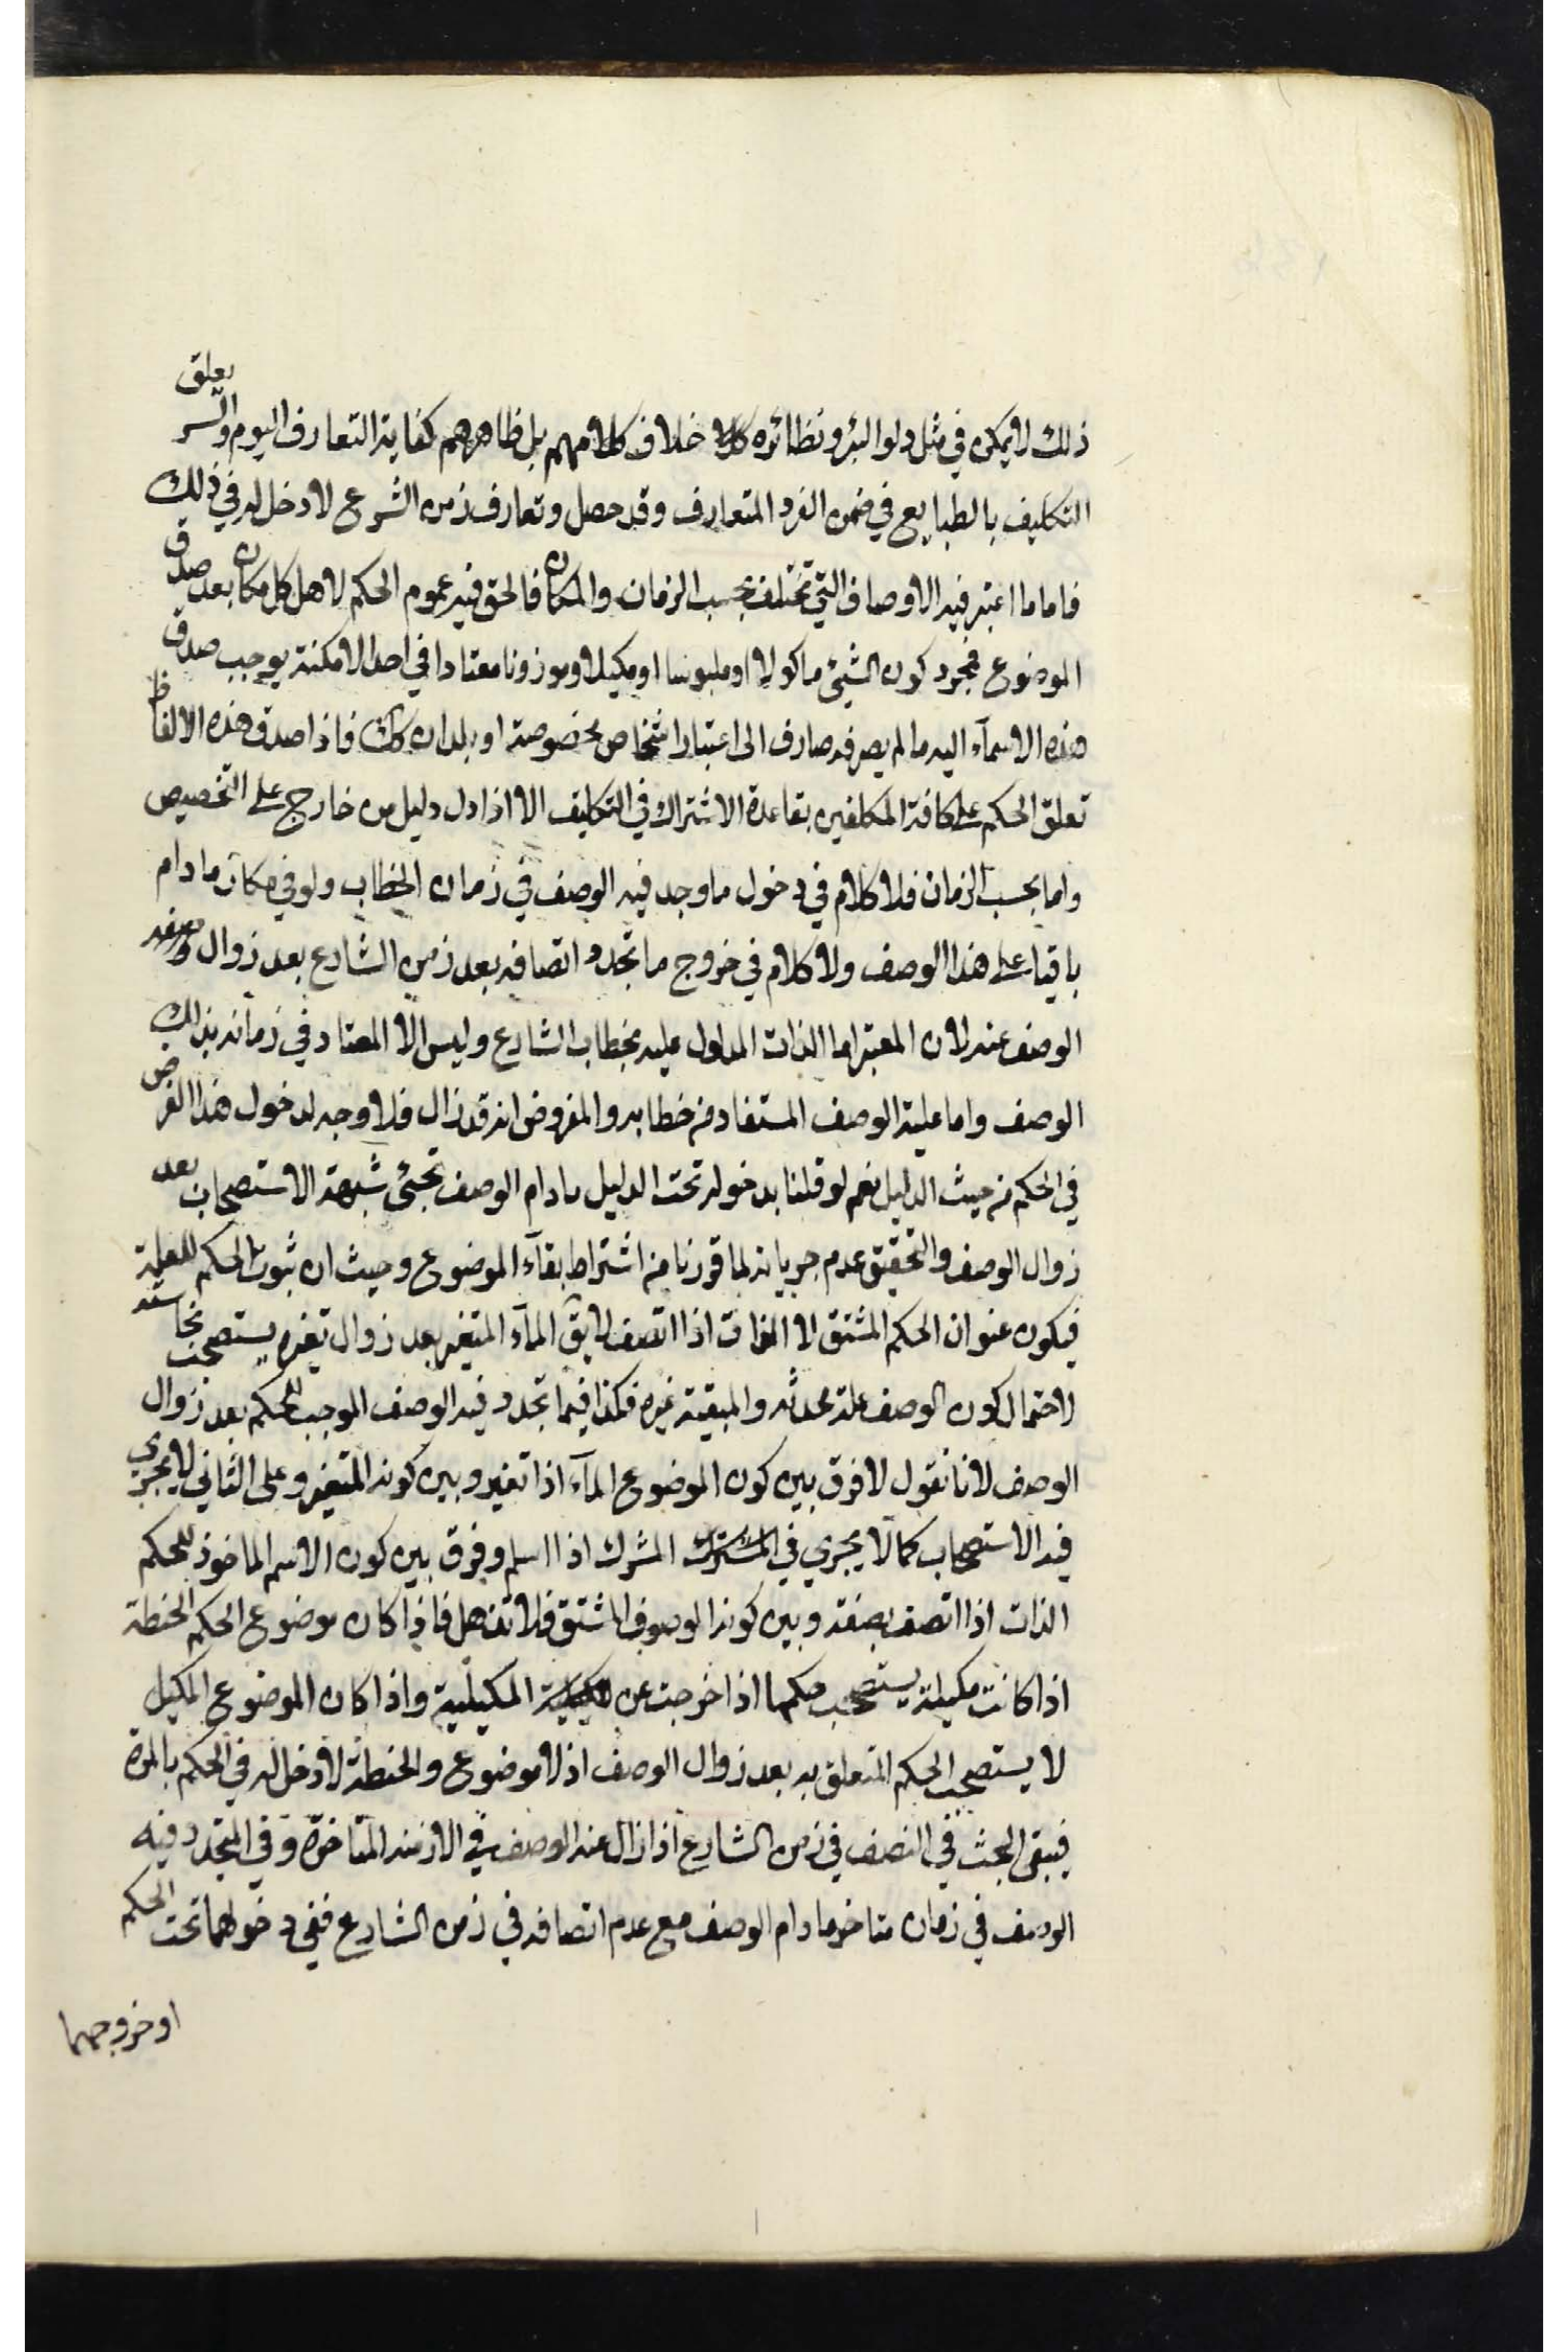 ذلك لا يمكن في مثل دلو البئر ونظائره خلاف كلامهم بل ظاهرهم كفاية التعارف اليوم والسر تعلق
التكليف بالطبايع في ضمن الفرد المتعارف وقد حصل وتعارف زمن الشرع لا دخل له في ذلك
فاما ما اعتبر فيه الاوصاف التي تختلف بحسب الزمان والمكان فالحق فيه عموم الحكم لاهل كل مكان بعد صدق
الموضوع فمجرد كون الشيئ ماكولا او ملبوسا او مكيلا وموزونا معتادا في احد الامكنة يوجب صدق
هذه الاسمآء اليه ما لم يصرفه صارف الى اعتبار اشخاص مخصوصة او بلدان كك فاذا صدق هذه الالفاظ
تعلق الحكم على كافة المكلفين بقاعدة الاشتراك في التكليف الا اذا دل دليل من خارج على التخصيص
واما بحسب الزمان فلا كلام في دخول ما وجد فيه الوصف في زمان الخطاب ولو في مكان ما دام
باقيا على هذا الوصف ولا كلام في خروج ما تجدد اتصافه بعد زمن الشارع بعد زوال
الوصف عنه لان المعتبر اما الذات المدلول عليه بخطاب الشارع وليس الا المعتاد في زمانه بذلك
الوصف واما علية الوصف المستفاد من خطابه والمفروض انه قد زال فلا وجه لدخول هذا الفرض
في الحكم من حيث الدليل نعم لو قلنا بدخوله تحت الدليل ما دام الوصف تجيئ شبهة الاستصحاب بعد
زوال الوصف والتحقيق عدم جريانه لما قررنا من اشتراط بقآء الموضوع وحيث ان ثبوت الحكم للعلية
فيكون عنوان الحكم المشتق لا الذات اذا اتصف لا يق المآء المتغير بعد زوال تغيره يستصحب نجاسته
لاحتمال كون الوصف علة محدثه والمبقية غيره فكذا فيما تجدد فيه الوصف الموجب للحكم بعد زوال
الوصف لانا نقول لا فرق بين كون الموضوع المآء اذا تغير وبين كونه المتغير وعلى الثاني لا يجري
فيه الاستصحاب كما لا يجري في المشرك اذا اسلم وفرق بين كون الاسم الماخوذ للحكم
الذات اذا اتصف بصفة وبين كونه الوصف المشتق فلا تذهل فاذا كان موضوع الحكم الحنطة
اذا كانت مكيلة يستصحب حكمها اذا خرجت عن المكيلية واذا كان الموضوع المكيل
لا يستصحب الحكم المتعلق به بعد زوال الوصف اذ لا موضوع والحنطة لا دخل له في الحكم بالمرة
فيبقى البحث في المتصف في زمن الشارع اذا زال عنه الوصف في الازمنه المتاخرة وفي المتجدد فيه
الوصف في زمان متاخر ما دام الوصف مع عدم اتصافه في زمن الشارع ففي دخولهما تحت الحكم
او خروجهما